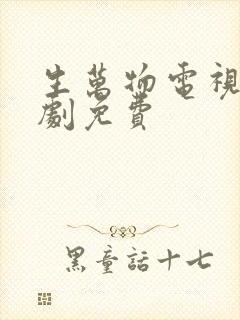 生萬物電視
劇免費
黑童話十七